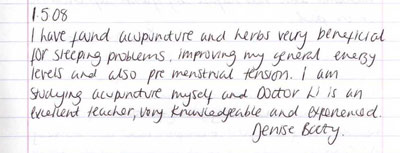 1.5.08
I have found acupuncture and herbs very beneficial
for sleeping problems, improving my general energy
levels and also pre menstrual tension. I am
studying acupuncture myself and Doctor Li is an
excellent teacher, very knowledgeable and experienced.
Denise